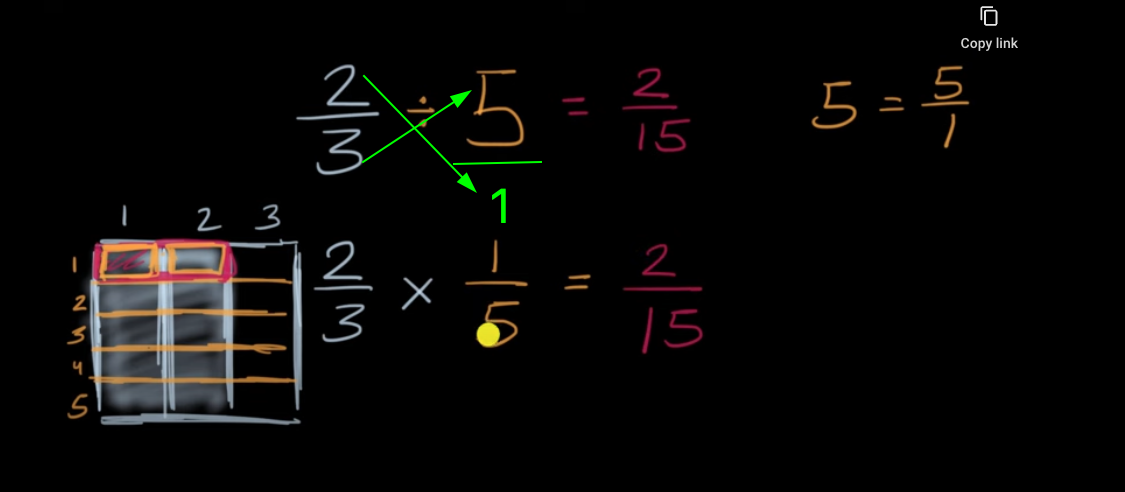 Copy link
2/3 ÷ 5/1 = 2/15
5 = 5/1
1 2 3
1
2
3
4
5
2/3 × 1/5 = 2/15